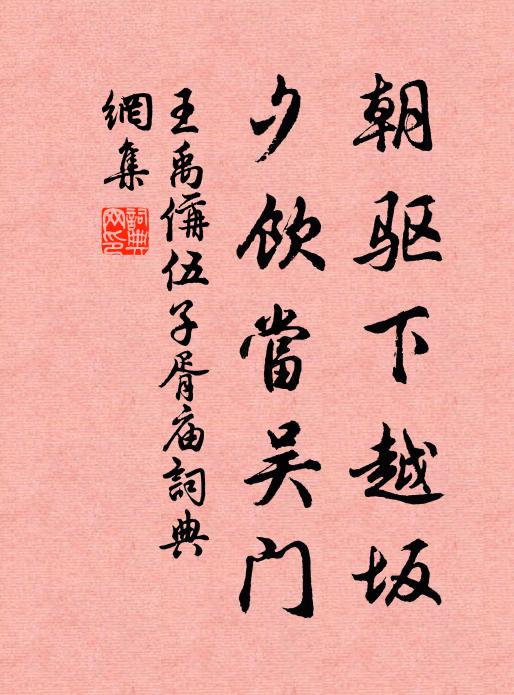 朝驱下越坂
夕饮當吴门
王禹偁伍子胥庙詞典
網集
詞典
网印